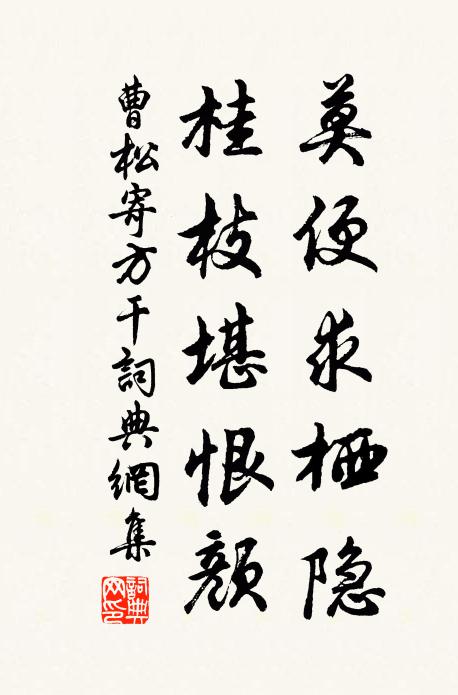 莫便求栖隐
桂枝堪恨颜
曹松寄方干詞典網集
詞典網印